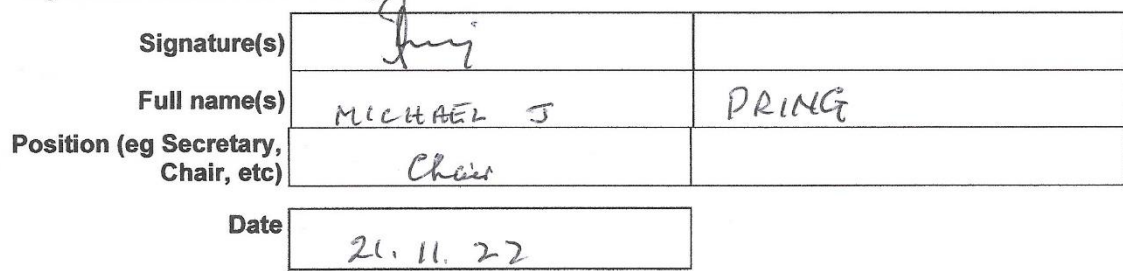 Signature(s)
Full name(s) MICHAEL J PRING
Position (eg Secretary,
Chair, etc) Chair
Date 21.11.22